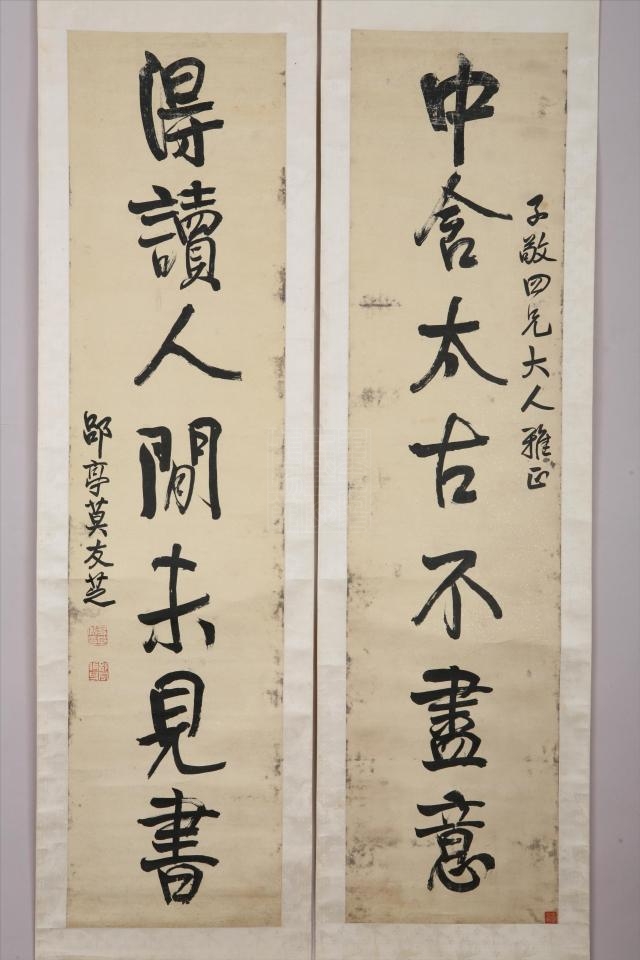 子敬四兄大人雅正
中含太古不盡意
得讀人間未見書
郘亭莫友芝